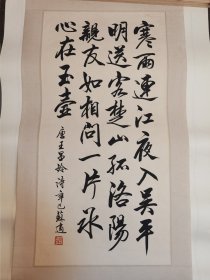 寒雨連江夜入吳平
明送客楚山孤洛陽
親友如相問一片冰
心在玉壺
唐王昌齡詩辛巳蘇